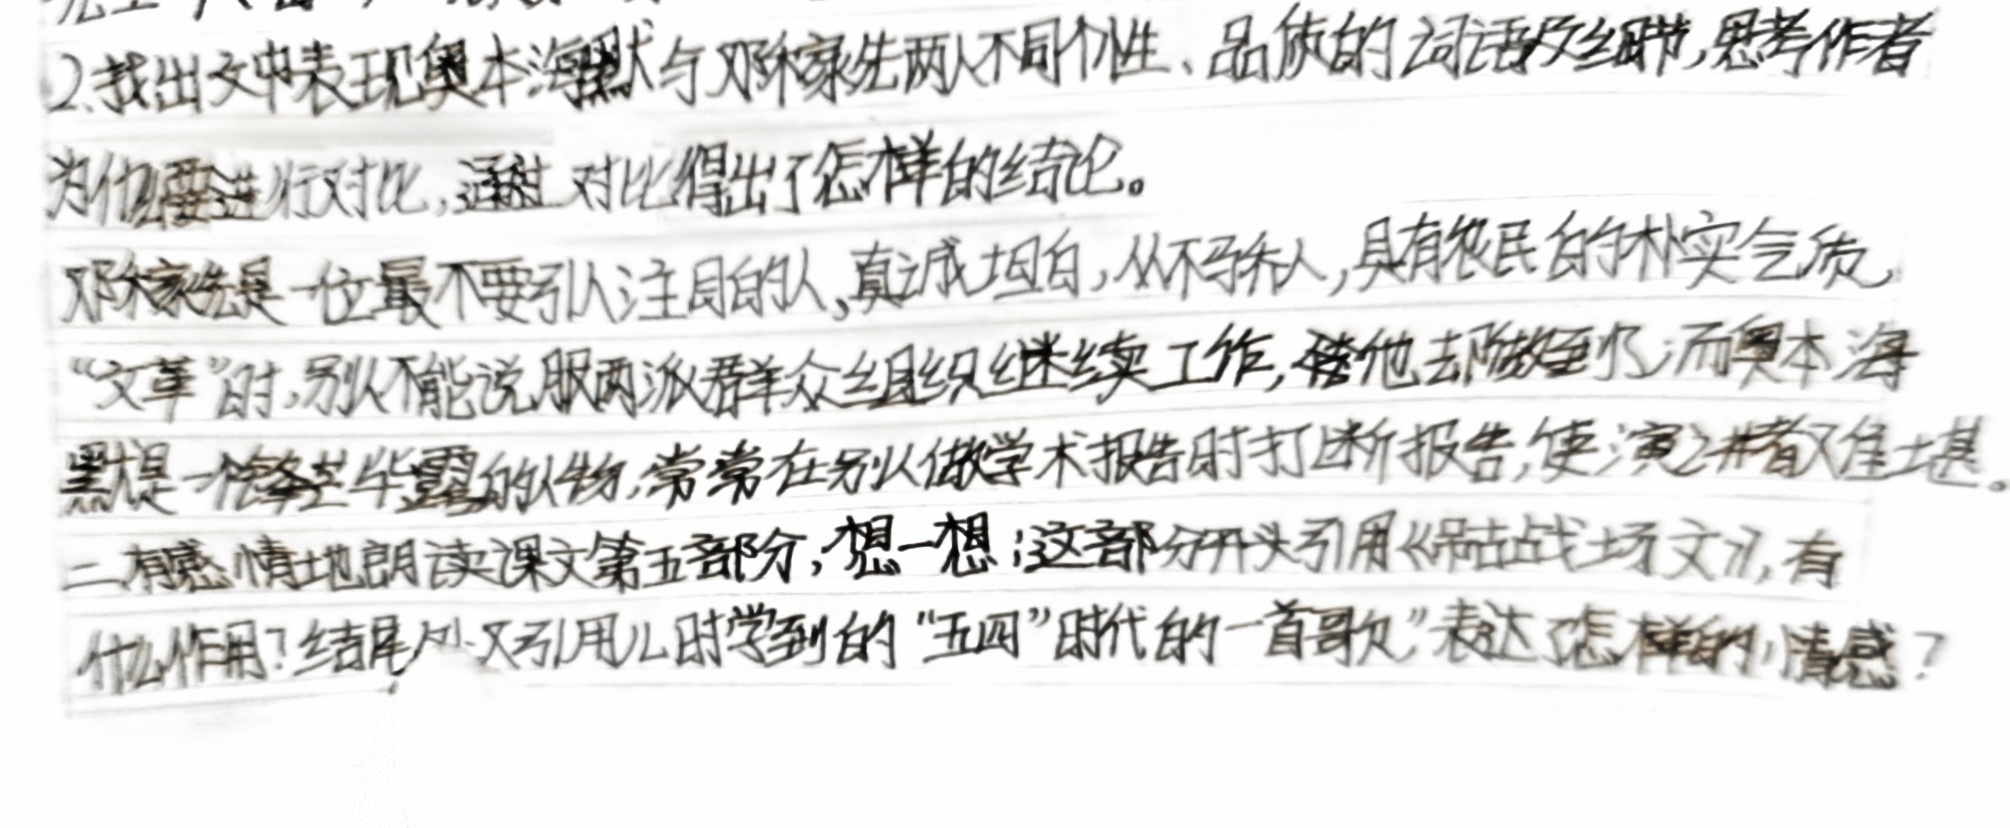 2.找出文中表现奥本海默与邓稼先两人不同个性、品质的词语及细节,思考作者
为什么要进行对比,通过对比得出了怎样的结论。
邓稼先是一位最不要引人注目的人,真诚坦白,从不骄人,具有农民的朴实气质,
“文革”时,别人不能说服两派群众组织继续工作,他去做到了;而奥本海
默是一个锋芒毕露的人物,常常在别人做学术报告时打断报告,使演讲者难堪。
二.有感情地朗读课文第五部分,想一想;这部分开头引用《吊古战场文》,有
什么作用?结尾处又引用儿时学到的“五四”时代的一首歌”表达了怎样的情感?